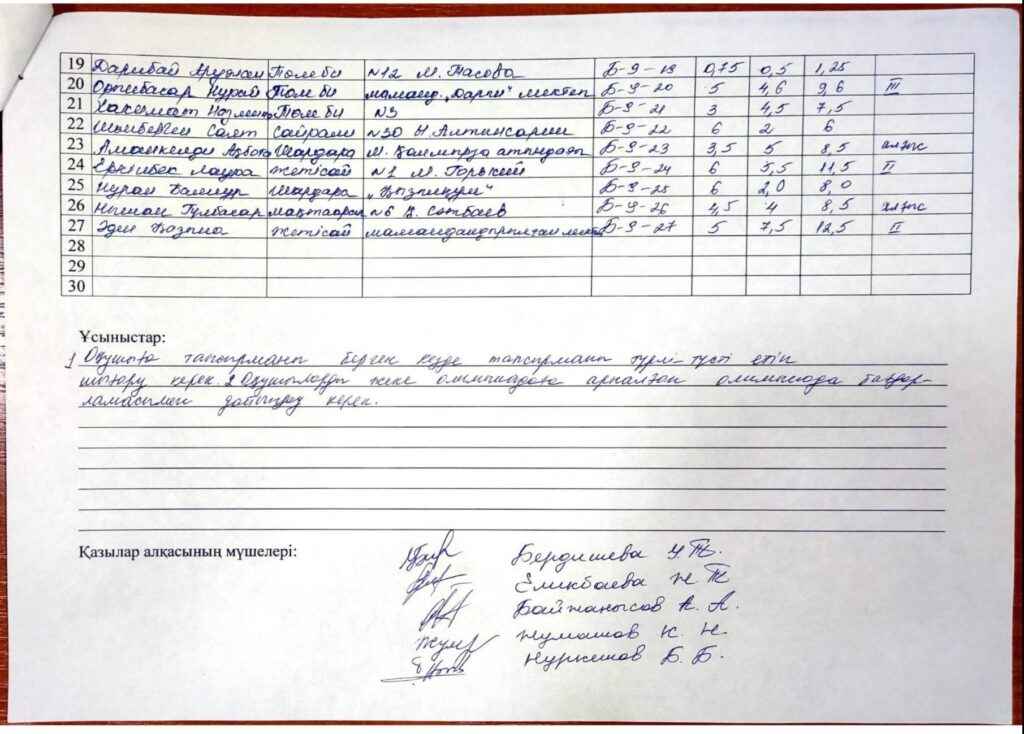 19 Дарибай Аружан Төле би №12 М. Тасова Б-9-19 0,75 0,5 1,25
20 Орынбасар Нұрай Төле би маманд. „Дарын" мектеп Б-9-20 5 4,6 9,6 III
21 Хакемет Назлент Төле би №3 Б-9-21 3 4,5 7,5
22 Сайрам №30 Ы. Алтынсарин Б-9-22 6 2 6
23 Аманкелди Шардара атындағы Б-9-23 3,5 5 8,5 алғыс
24 Еркінбек Лаура Жетісай №1 М. Горький Б-9-24 6 5,5 11,5 II
25 Нұрай Шардара „Қызылқұм" Б-9-25 6 2,0 8,0
26 Нышан Гүлбасар Мақтаарал №6 Қ. Сәтбаев Б-9-26 4,5 4 8,5 алғыс
27 Әден Жетісай мамандандырылған Б-9-27 5 7,5 12,5 II
28
29
30
Ұсыныстар:
1 Оқушыға тапсырманы берген кезде тапсырманы түрлі-түсті етіп
шығару керек. 2 Оқушыларды жеке олимпиадаға арналған олимпиада бағдар-
ламасымен дайындау керек.
Қазылар алқасының мүшелері:
Бердишева Ұ.Т.
Еликбаева Н Т
Байжанысов А. А.
Жумашов К. Н.
Нуришов Б. Б.